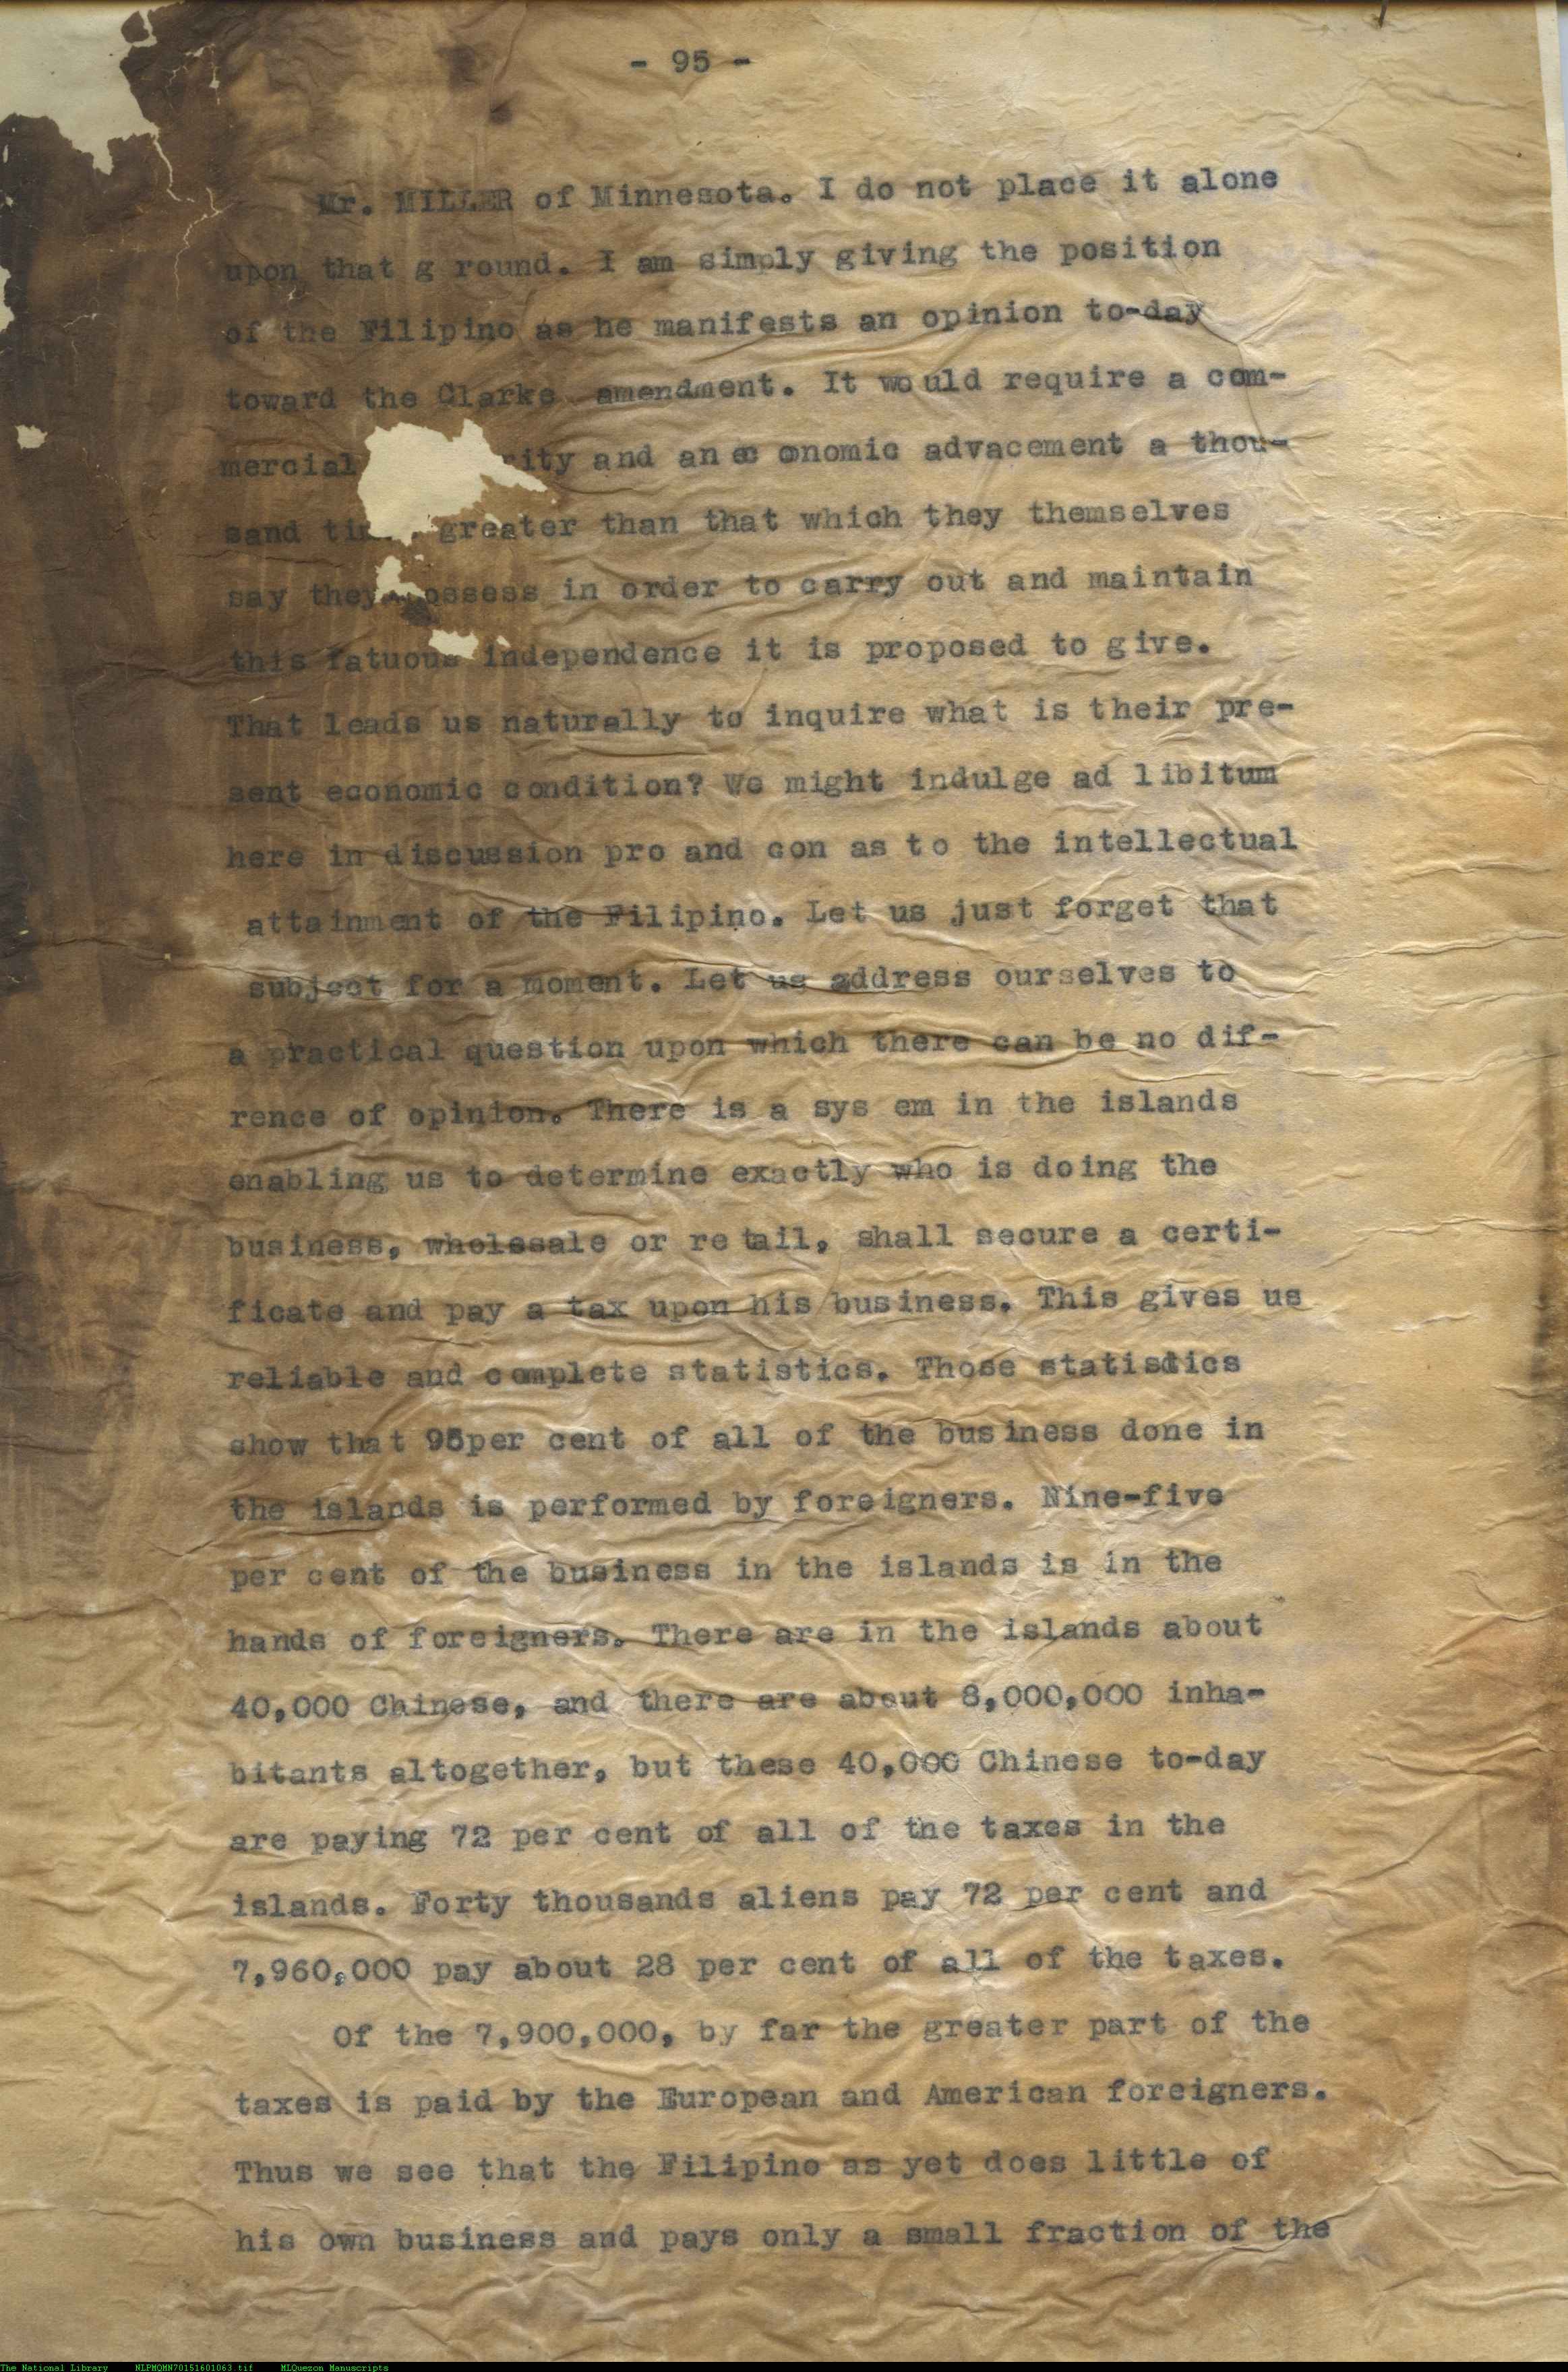 - 95 -
Mr. MILLER of Minnesota. I do not place it alone
upon that g round. I am simply giving the position
of the Filipino as he manifests an opinion to-day
toward the Clarke amendment. It would require a com-
mercial rity and an ec onomic advacement a thou-
sand greater than that which they themselves
say they possess in order to carry out and maintain
this fatuous independence it is proposed to give.
That leads us naturally to inquire what is their pre-
sent economic condition? We might indulge ad libitum
here in discussion pro and con as to the intellectual
attainment of the Filipino. Let us just forget that
subject for a moment. Let us address ourselves to
a practical question upon which there can be no dif-
rence of opinion. There is a sys em in the islands
enabling us to determine exactly who is doing the
business, wholesale or retail, shall secure a certi-
ficate and pay a tax upon his business. This gives us
reliable and complete statistics. Those statistics
show that 95per cent of all of the business done in
the islands is performed by foreigners. Nine-five
per cent of the business in the islands is in the
hands of foreigners. There are in the islands about
40,000 Chinese, and there are about 8,000,000 inha-
bitants altogether, but these 40,000 Chinese to-day
are paying 72 per cent of all of the taxes in the
islands. Forty thousands aliens pay 72 per cent and
7,960,000 pay about 28 per cent of all of the taxes.
Of the 7,900,000, by far the greater part of the
taxes is paid by the European and American foreigners.
Thus we see that the Filipino as yet does little of
his own business and pays only a small fraction of the
The National Library NLPMQMN70151601063.tif MLQuezon Manuscripts